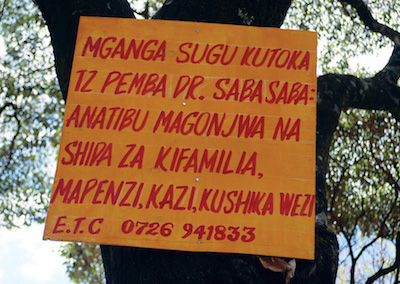 MGANGA SUGU KUTOKA
TZ PEMBA DR. SABASABA:
ANATIBU MAGONJWA NA
SHIDA ZA KIFAMILIA,
MAPENZI, KAZI, KUSHIKA WEZI
E.T.C 0726 941833